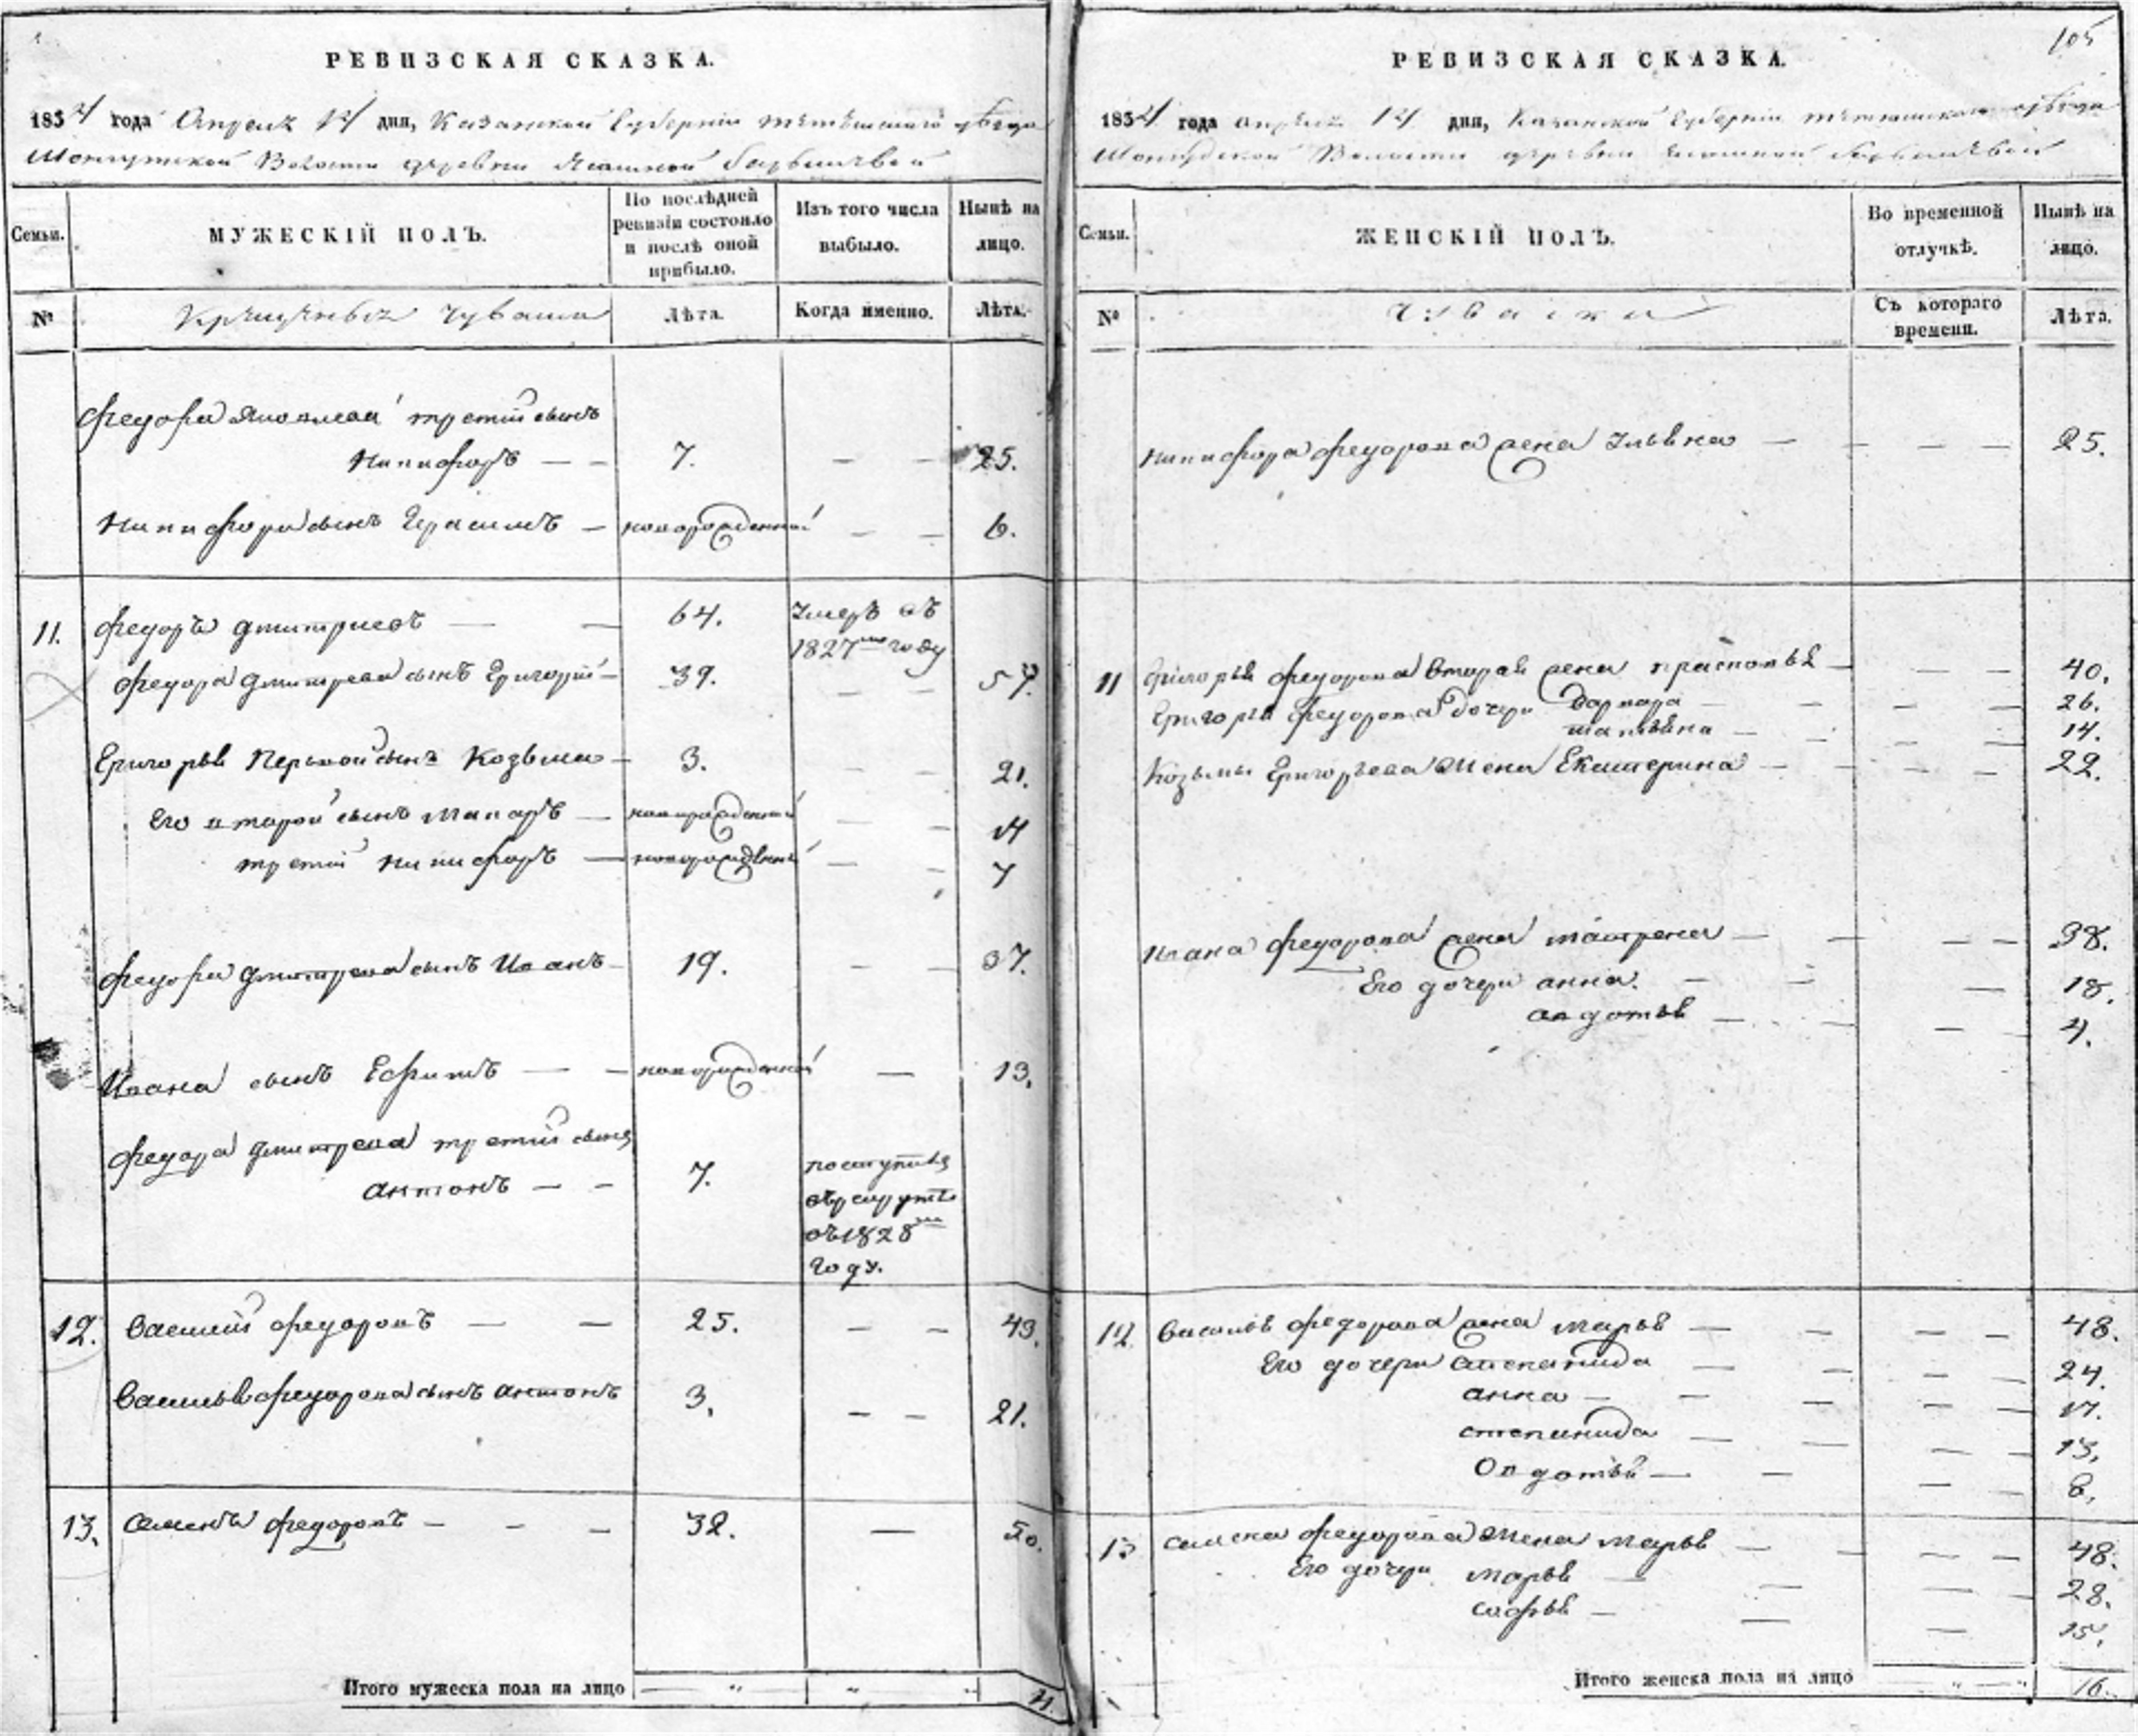 РЕВИЗСКАЯ СКАЗКА.
1834 года Апреля 14 дня, Казанской Губернии Тетюшского уезда
Волости деревни Ясашной
Семьи.
МУЖЕСКІЙ ПОЛЪ.
По послѣдней
ревизіи состояло
и послѣ оной
прибыло.
Изъ того числа
выбыло.
Нынѣ на
лицо.
№
Крещеных Чуваш
Лѣта.
Когда именно.
Лѣта.
Федора Яковлева третий сынъ
Никифоръ — — 7. — — 25.
Никифора сынъ Герасимъ — новорожденной — — 6.
11. Федоръ Дмитриевъ — — 64. Умеръ въ
1827мъ году
Федора Дмитрева сынъ Григорий — 39. — — 57.
Григорья Первой сынъ Козьма — 3. — — 21.
Его второй сынъ Макаръ — новорожденной — — 14
третий Никифоръ — новорожденной — — 7
Федора Дмитрева сынъ Иванъ — 19. — — 37.
Ивана сынъ Ефимъ — — новорожденной — 13.
Федора Дмитрева третий сынъ
Антонъ — — 7. поступилъ
в рекруты
въ 1828мъ
году.
12. Василий Федоровъ — — 25. — — 43.
Василья Федорова сынъ Антонъ 3. — — 21.
13. Семенъ Федоровъ — — — 32. — 50.
Итого мужеска пола на лицо — „ „ „ 11.
105
РЕВИЗСКАЯ СКАЗКА.
1834 года апреля 14 дня, Казанской Губернии Тетюшского уезда
Волости деревни Ясашной
Семьи.
ЖЕНСКІЙ ПОЛЪ.
Во временной
отлучкѣ.
Нынѣ на
лицо.
№
Чуваски
Съ котораго
времени.
Лѣта.
Никифора Федорова жена Ульяна — — — — 25.
11 Григорья Федорова вторая жена Прасковья — — — 40.
Григорья Федорова дочери Варвара — — — — 26.
Татьяна — — — — 14.
Козьмы Григорьева жена Екатерина — — — — 22.
Ивана Федорова жена Матрена — — — — 38.
Его дочери анна. — — — 18.
авдотья — — — 4.
12 Василья Федорова жена Марья — — — — 48.
Его дочери Степанида — — — — 24.
анна — — — — — 17.
степанида — — — — 13.
Овдотья — — — — 8.
13 Семена Федорова жена Марья — — — — 48.
Его дочери Марья — — — — 28.
софья — — — 15.
Итого женска пола на лицо „ „ 16.